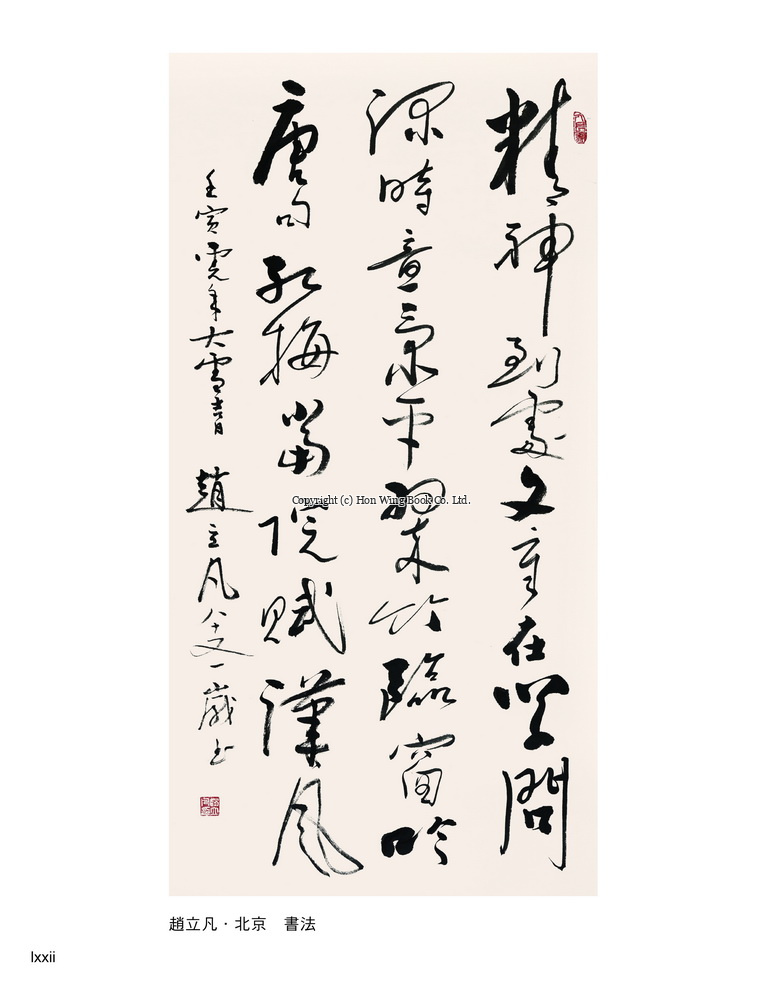 精神到處文章在學問
深時意氣平翠竹臨窗吟
唐句紅梅當院賦漢風
壬寅虎年大雪書
趙立凡八十又一歲書
Copyright (c) Hon Wing Book Co. Ltd.
趙立凡·北京　書法
lxxii